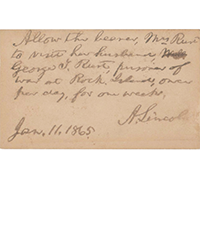 Allow the bearer, Mrs Rust
to visit her husband,
George W. Rust, prisoner of
war at Rock Island, once
per day, for one week.
A. Lincoln
Jan. 11. 1865